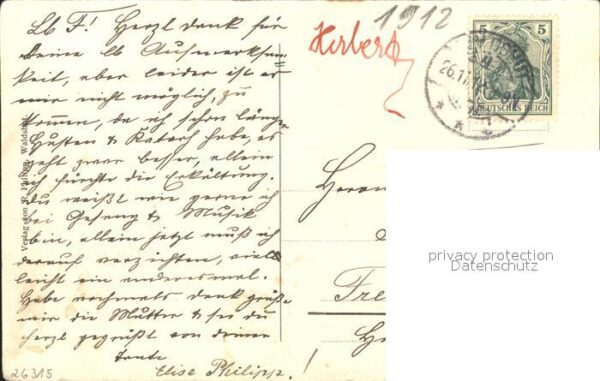 Lb F! Herzl dank für
deine lb Aufmerksam
keit, aber leider ist es
mir nicht möglich, zu
kommen, da ich schon länger
Husten & Katarh habe, es
geht zwar besser, allein
ich fürchte die Erkältung.
Du weißt wie gerne ich
bei Gesang & Musik
bin, allein jetzt muß ich
darauf verzichten, viel
leicht ein anderesmal.
Habe nochmals dank grüße
mir die Mutter & sei du
herzl gegrüßt von deiner
Tante
Elise Philipp.
26315
Verlag von Waldshut
Herbert
1912
5 5
DEUTSCHES REICH
26.11
Herrn
Fre
privacy protection
Datenschutz